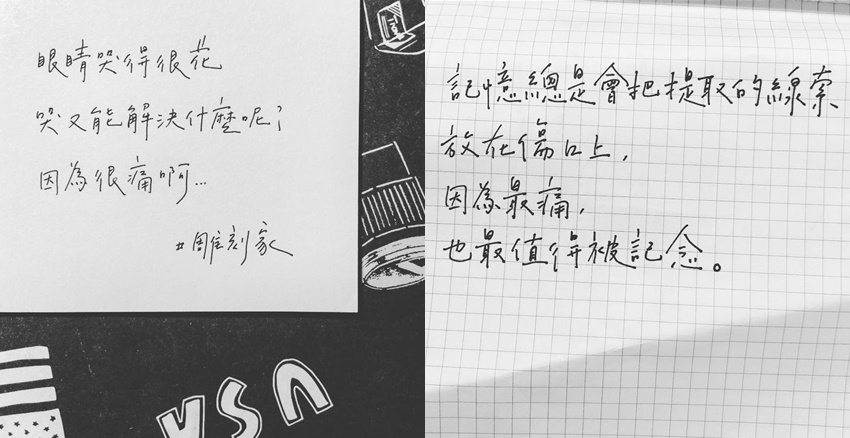 眼睛哭得很花
哭又能解決什麼呢?
因為很痛啊…
#雕刻家
USA
記憶總是會把提取的線索
放在傷口上,
因為最痛,
也最值得被記念。